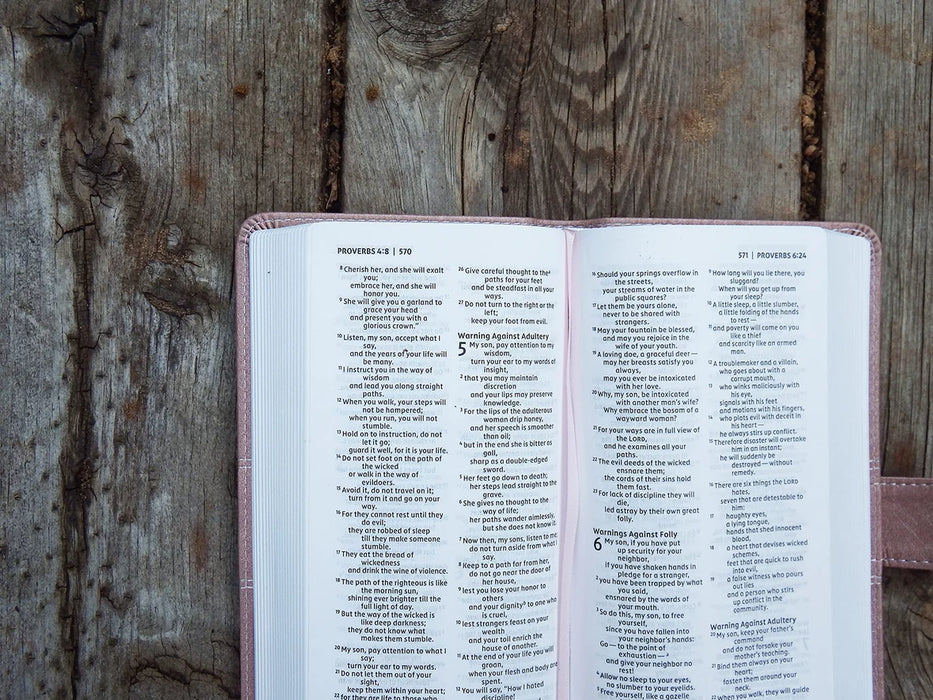 PROVERBS 4:8 | 570
8 Cherish her, and she will exalt
you;
embrace her, and she will
honor you.
9 She will give you a garland to
grace your head
and present you with a
glorious crown.”
10 Listen, my son, accept what I
say,
and the years of your life will
be many.
11 I instruct you in the way of
wisdom
and lead you along straight
paths.
12 When you walk, your steps will
not be hampered;
when you run, you will not
stumble.
13 Hold on to instruction, do not
let it go;
guard it well, for it is your life.
14 Do not set foot on the path of
the wicked
or walk in the way of
evildoers.
15 Avoid it, do not travel on it;
turn from it and go on your
way.
16 For they cannot rest until they
do evil;
they are robbed of sleep
till they make someone
stumble.
17 They eat the bread of
wickedness
and drink the wine of violence.
18 The path of the righteous is like
the morning sun,
shining ever brighter till the
full light of day.
19 But the way of the wicked is
like deep darkness;
they do not know what
makes them stumble.
20 My son, pay attention to what I
say;
turn your ear to my words.
21 Do not let them out of your
sight,
keep them within your heart;
22 for they are life to those who
26 Give careful thought to the a
paths for your feet
and be steadfast in all your
ways.
27 Do not turn to the right or the
left;
keep your foot from evil.
Warning Against Adultery
5 My son, pay attention to my
wisdom,
turn your ear to my words of
insight,
2 that you may maintain
discretion
and your lips may preserve
knowledge.
3 For the lips of the adulterous
woman drip honey,
and her speech is smoother
than oil;
4 but in the end she is bitter as
gall,
sharp as a double-edged
sword.
5 Her feet go down to death;
her steps lead straight to the
grave.
6 She gives no thought to the
way of life;
her paths wander aimlessly,
but she does not know it.
7 Now then, my sons, listen to me;
do not turn aside from what I
say.
8 Keep to a path far from her,
do not go near the door of
her house,
9 lest you lose your honor to
others
and your dignity b to one who
is cruel,
10 lest strangers feast on your
wealth
and your toil enrich the
house of another.
11 At the end of your life you will
groan,
when your flesh and body are
spent.
12 You will say, “How I hated
discipline!
571 | PROVERBS 6:24
16 Should your springs overflow in
the streets,
your streams of water in the
public squares?
17 Let them be yours alone,
never to be shared with
strangers.
18 May your fountain be blessed,
and may you rejoice in the
wife of your youth.
19 A loving doe, a graceful deer—
may her breasts satisfy you
always,
may you ever be intoxicated
with her love.
20 Why, my son, be intoxicated
with another man’s wife?
Why embrace the bosom of a
wayward woman?
21 For your ways are in full view of
the LORD,
and he examines all your
paths.
22 The evil deeds of the wicked
ensnare them;
the cords of their sins hold
them fast.
23 For lack of discipline they will
die,
led astray by their own great
folly.
Warnings Against Folly
6 My son, if you have put
up security for your
neighbor,
if you have shaken hands in
pledge for a stranger,
2 you have been trapped by what
you said,
ensnared by the words of
your mouth.
3 So do this, my son, to free
yourself,
since you have fallen into
your neighbor’s hands:
Go — to the point of
exhaustion —
and give your neighbor no
rest!
4 Allow no sleep to your eyes,
no slumber to your eyelids.
5 Free yourself, like a gazelle
9 How long will you lie there, you
sluggard?
When will you get up from
your sleep?
10 A little sleep, a little slumber,
a little folding of the hands
to rest—
11 and poverty will come on you
like a thief
and scarcity like an armed
man.
12 A troublemaker and a villain,
who goes about with a
corrupt mouth,
13 who winks maliciously with
his eye,
signals with his feet
and motions with his fingers,
14 who plots evil with deceit in
his heart—
he always stirs up conflict.
15 Therefore disaster will overtake
him in an instant;
he will suddenly be
destroyed—without
remedy.
16 There are six things the LORD
hates,
seven that are detestable to
him:
17 haughty eyes,
a lying tongue,
hands that shed innocent
blood,
18 a heart that devises wicked
schemes,
feet that are quick to rush
into evil,
19 a false witness who pours
out lies
and a person who stirs
up conflict in the
community.
Warning Against Adultery
20 My son, keep your father’s
command
and do not forsake your
mother’s teaching.
21 Bind them always on your
heart;
fasten them around your
neck.
22 When you walk, they will guide